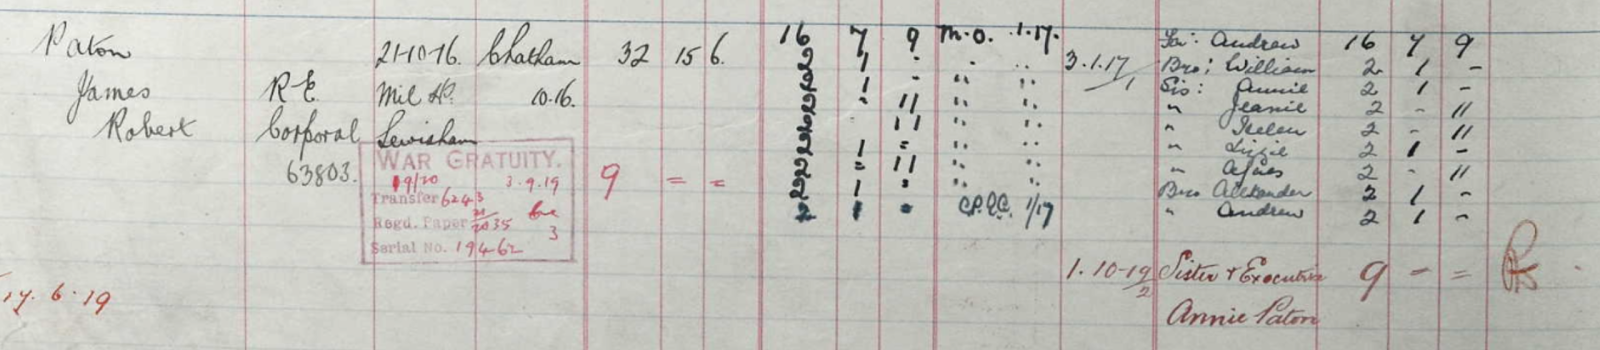 Paton 21-10-16. Chatham 32 15 6. 16 7 9 M.O. 1.17. Fa: Andrew 16 7 9
3.1.17/1 Bro: William 2 1 -
James R.E. Mil Hl. 10.16. Sis: Annie 2 1 -
" Jeanie 2 - 11
Robert Corporal Lewisham " Helen 2 - 11
WAR GRATUITY. " Lizzie 2 1 -
63803. 19/20 3.9.19 9 = = " Agnes 2 - 11
Transfer 6243 Bro Alexander 2 1 -
Regd. Paper 35 3 1/17 " Andrew 2 1 -
Serial No. 19462
1.10-19/2 Sister & Executrix 9 - =
17.6.19 Annie Paton